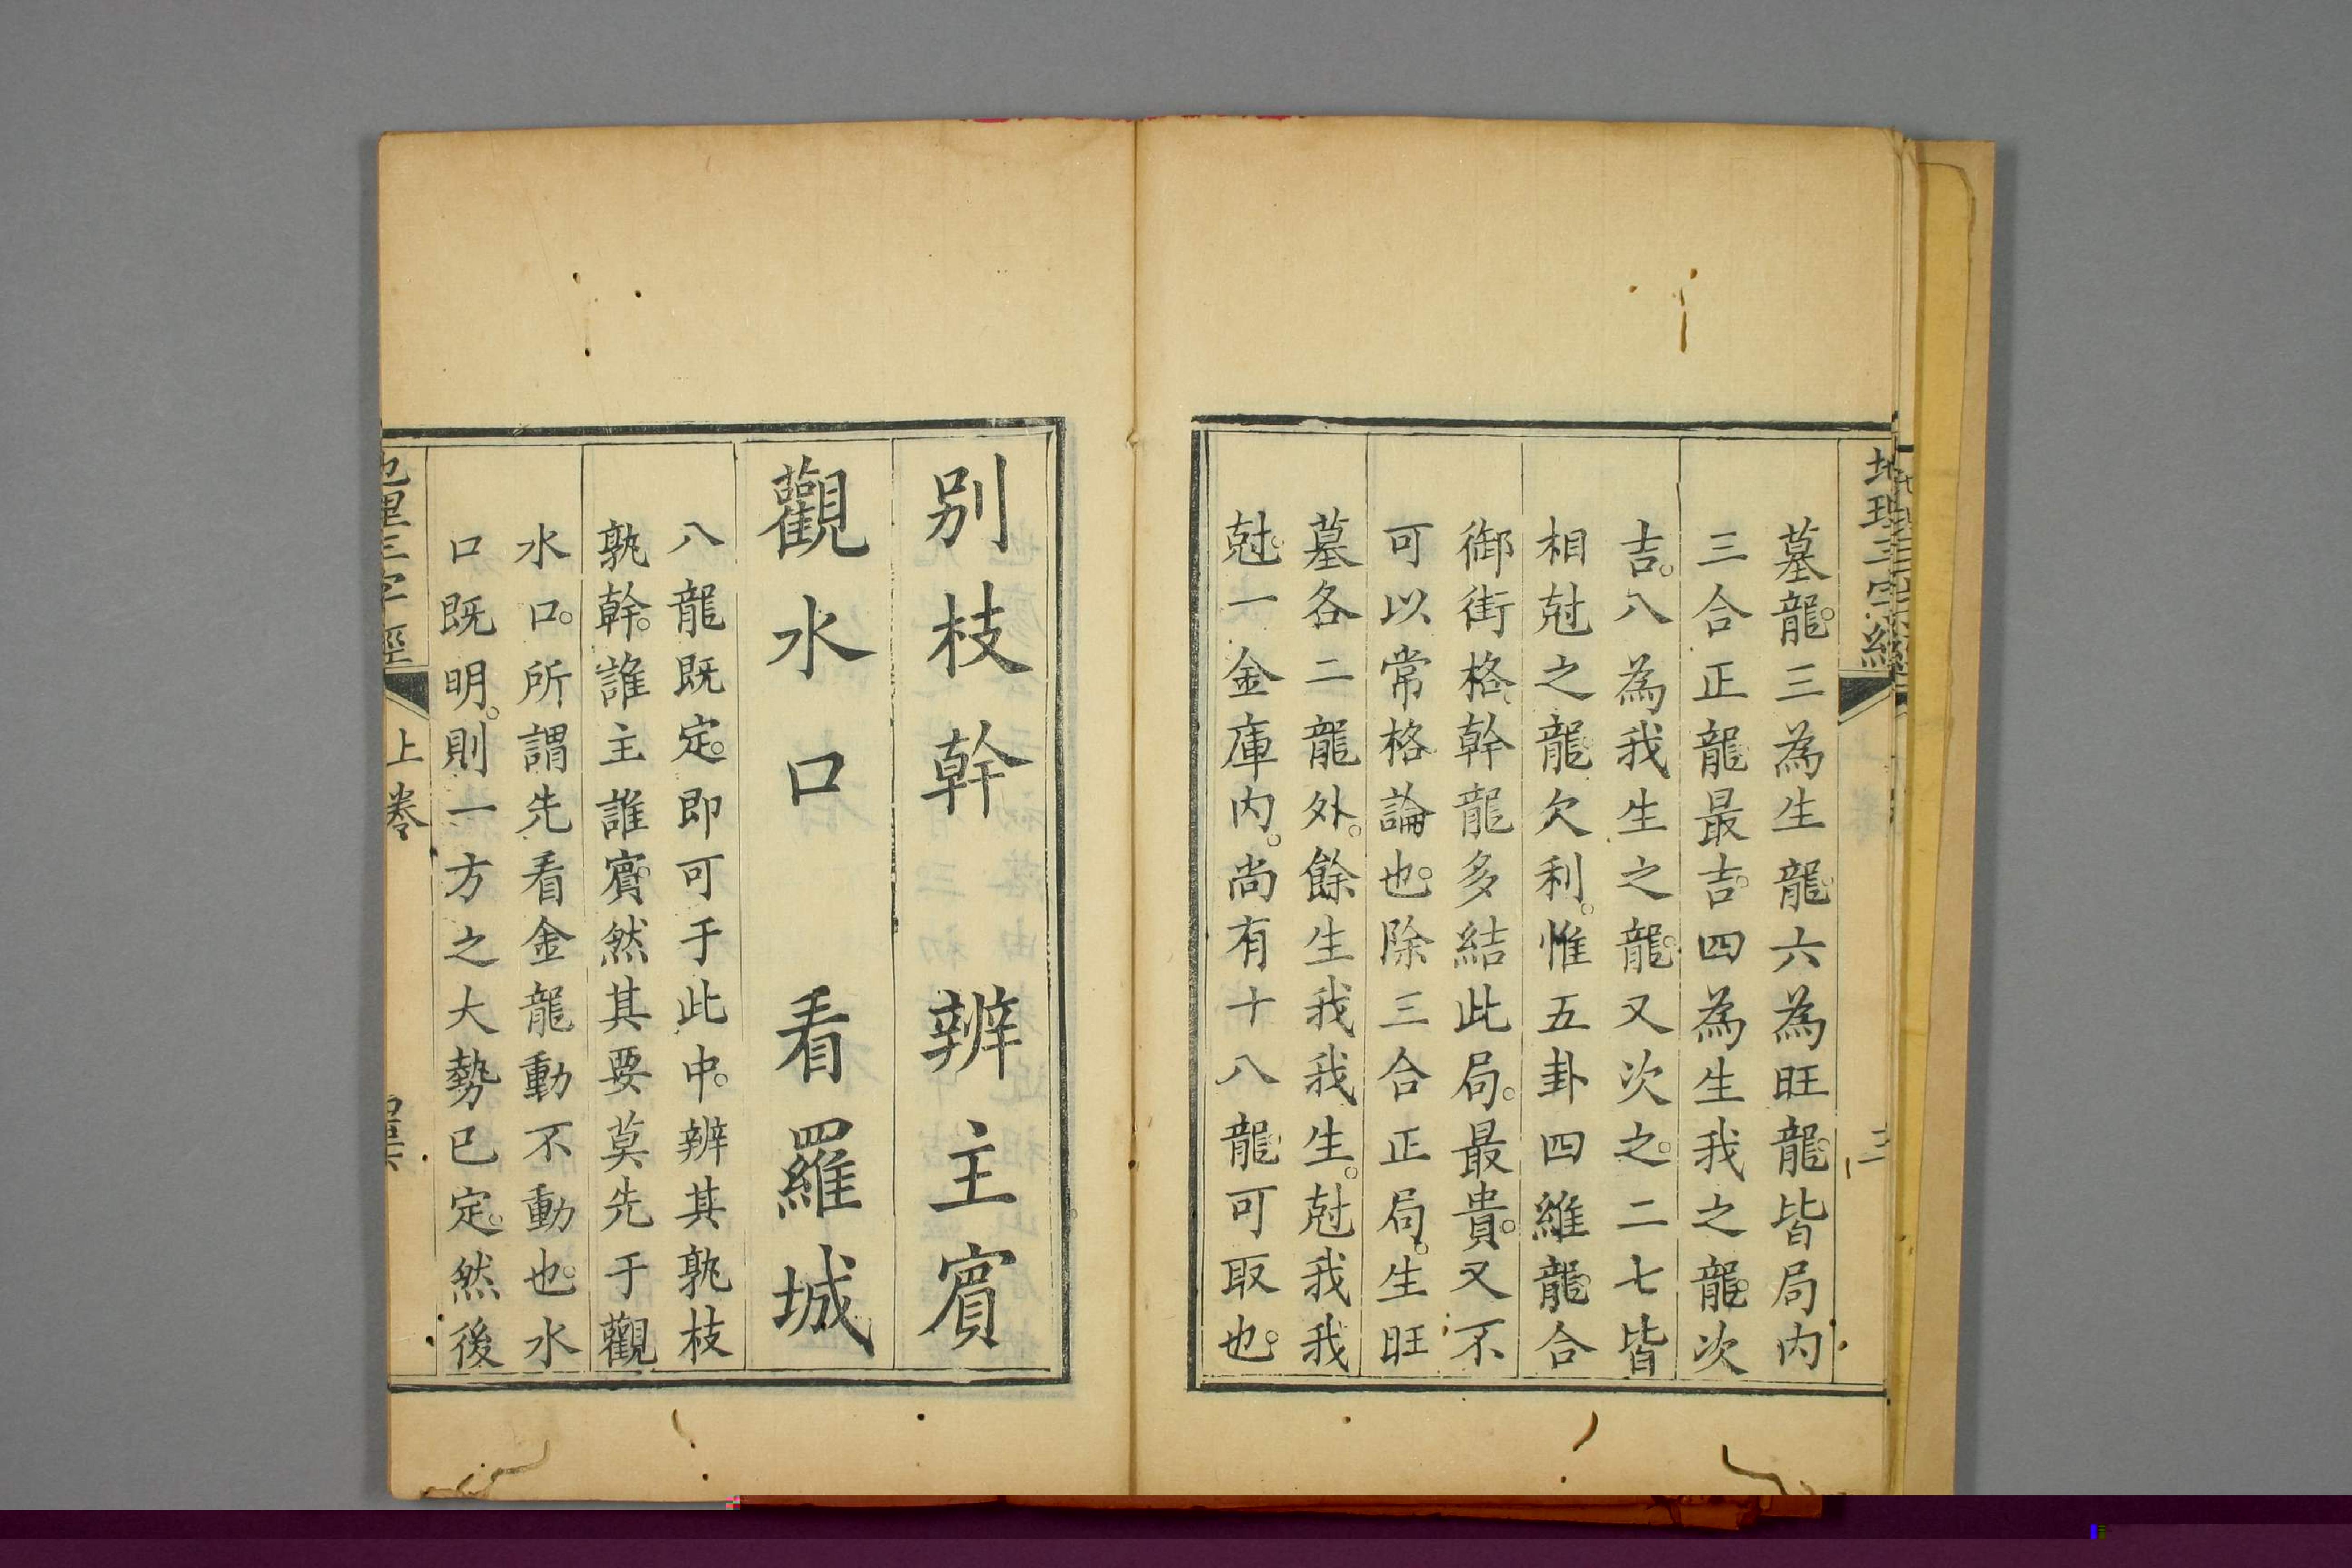 地理三字經
墓龍。三為生龍。六為旺龍。皆局内
三合正龍。最吉。四為生我之龍。次
吉。八為我生之龍。又次之。二七皆
相尅之龍。欠利。惟五卦四維龍。合
御街格。幹龍多結此局。最貴。又不
可以常格論也。除三合正局。生旺
墓各二龍外。餘生我我生。尅我我
尅。一金庫内。尚有十八龍。可取也。
別枝幹　辨主賓
觀水口　看羅城
八龍既定。即可于此中。辨其孰枝
孰幹。誰主誰賓。然其要莫先于觀
水口。所謂先看金龍動不動也。水
口既明。則一方之大勢已定。然後
地理三字經
上卷